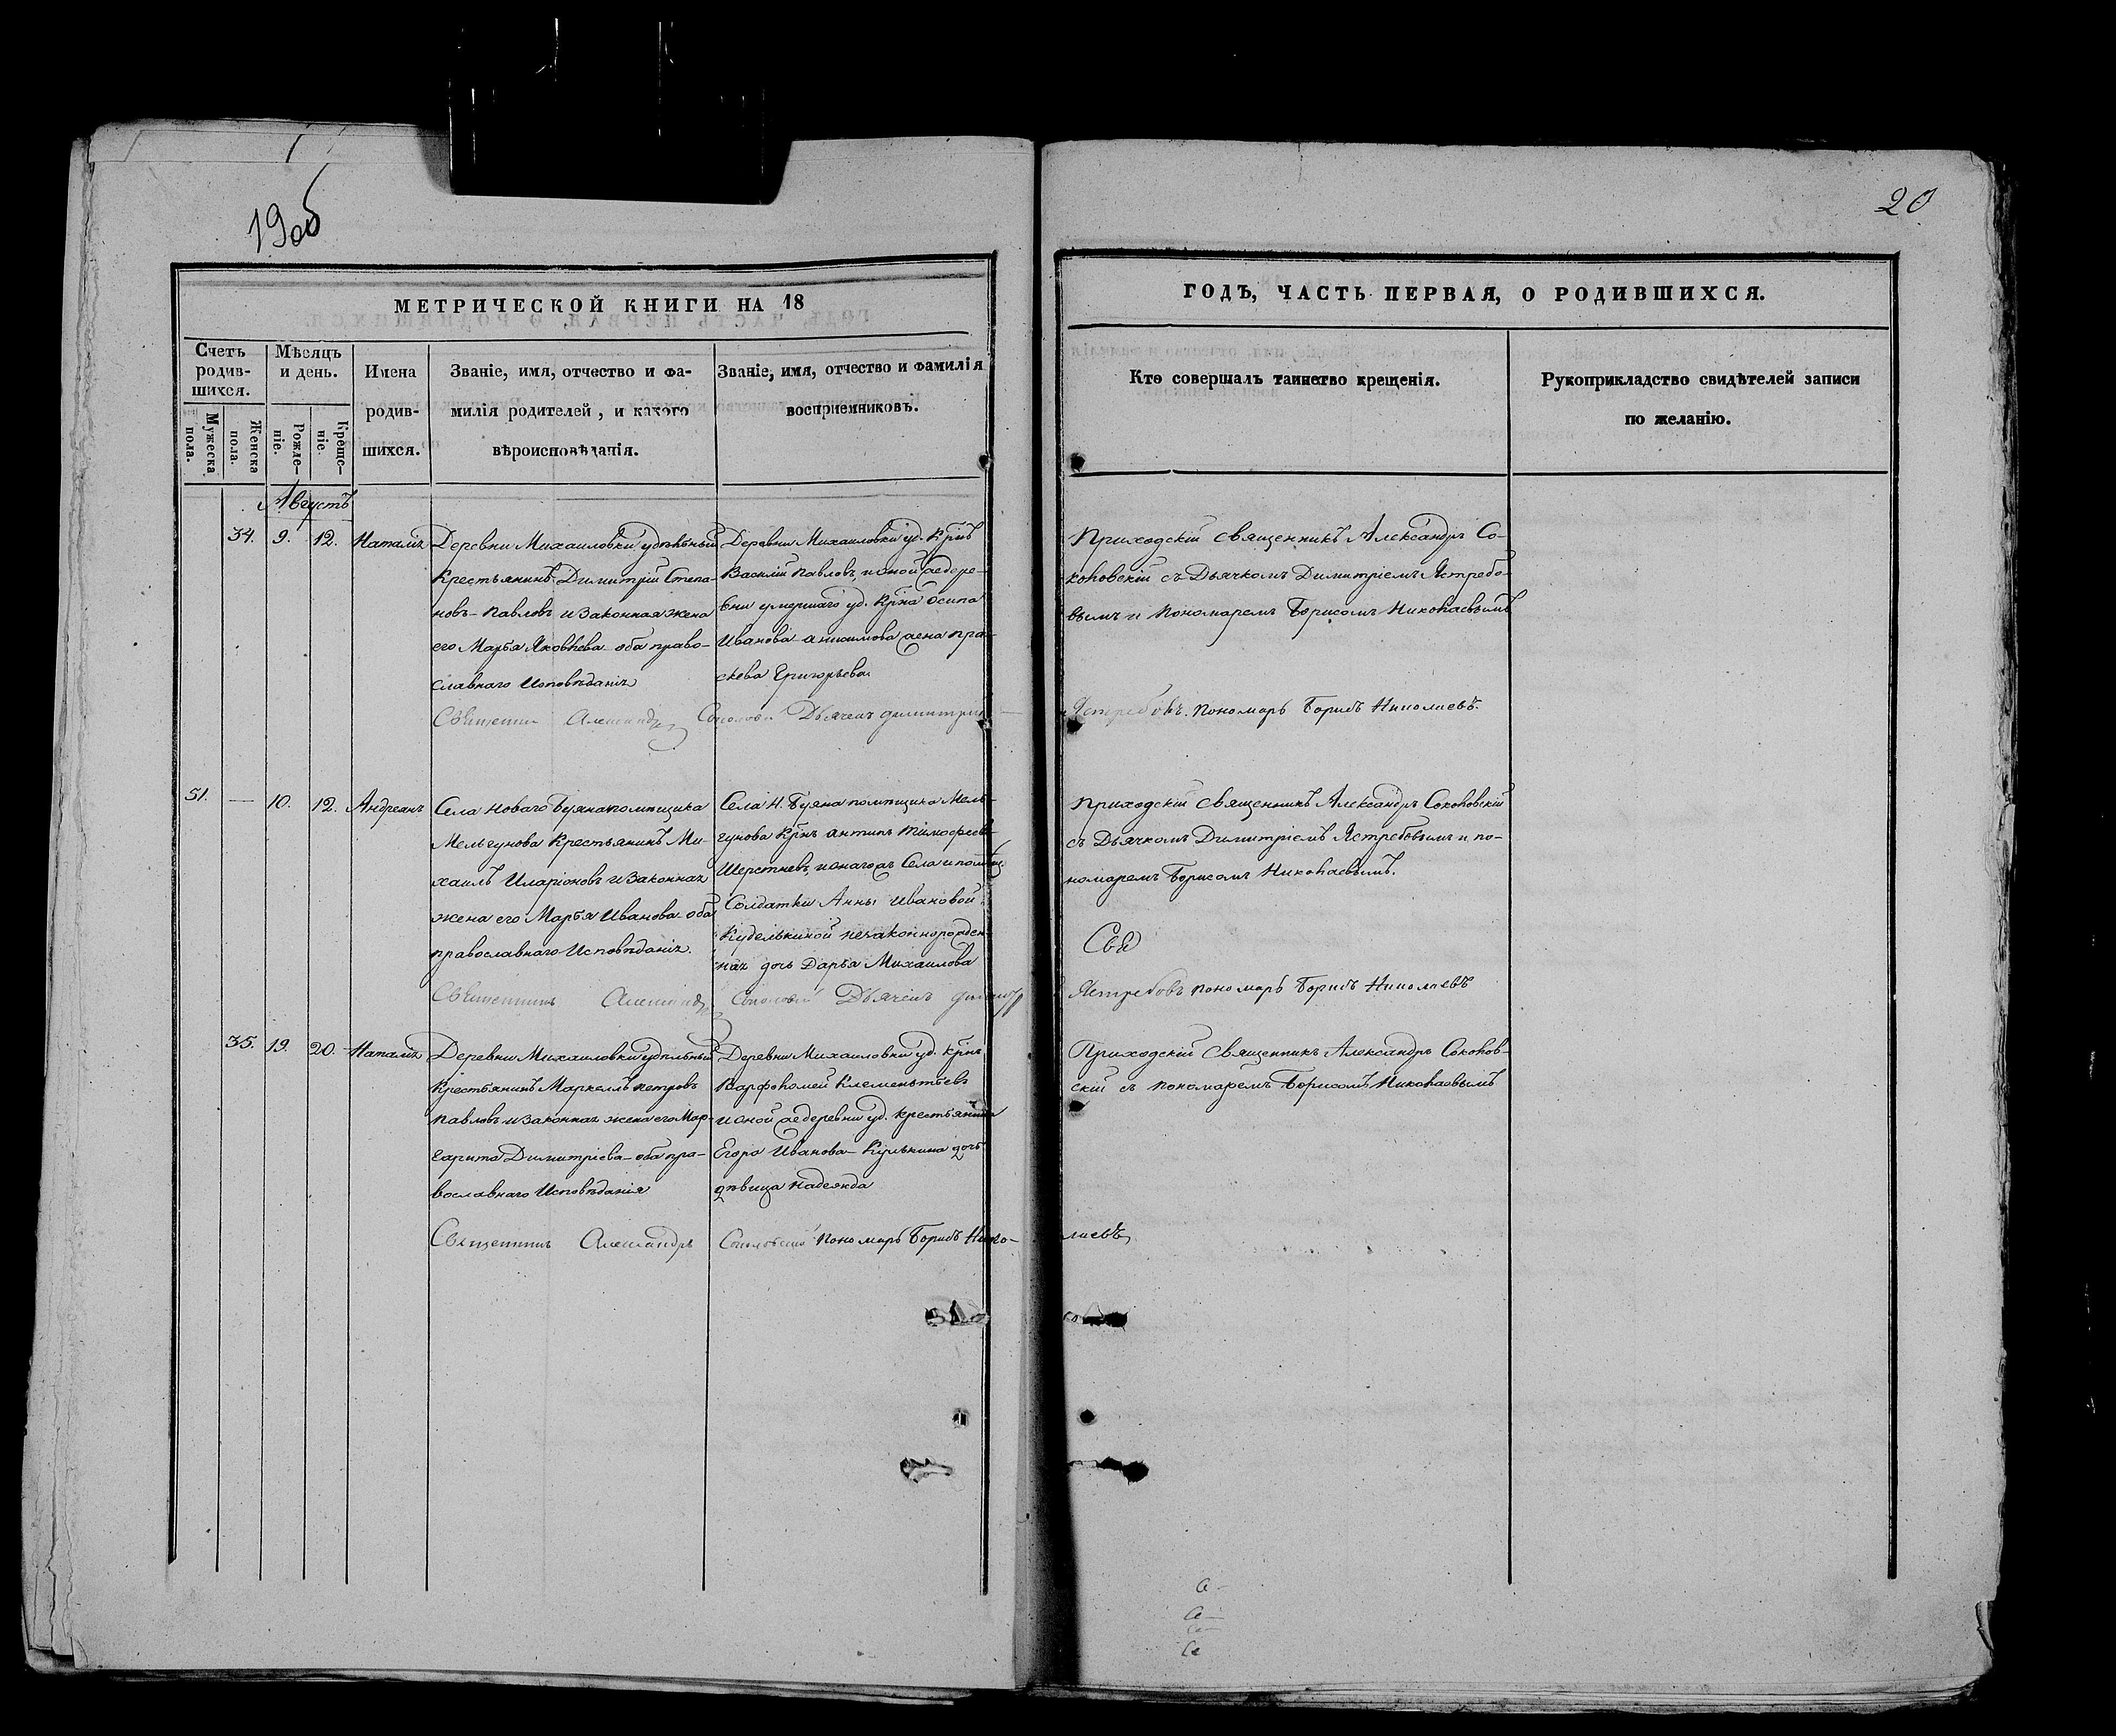 19об
20
МЕТРИЧЕСКОЙ КНИГИ НА 18
ГОДЪ, ЧАСТЬ ПЕРВАЯ, О РОДИВШИХСЯ.
Счетъ родив-шихся.
Мужеска пола.
Женска пола.
Мѣсяцъ и день.
Рожде-ніе.
Креще-ніе.
Имена
родив-
шихся.
Званіе, имя, отчество и фа-
милія родителей, и какого
вѣроисповѣданія.
Званіе, имя, отчество и фамилія
восприемниковъ.
Кто совершалъ таинство крещенія.
Рукоприкладство свидѣтелей записи
по желанію.
Августъ
34. 9. 12. Наталія
Деревни Михаиловки удѣльный
крестьянинъ Димитрій Степа-
новъ-Павловъ и законная жена
его Марѳа Яковлева оба право-
славнаго Исповѣданія
Деревни Михаиловки уд. крнъ
Василій Павловъ, и оной же дере-
вни умершаго уд. крна Осипа
Иванова Анисимова жена Пра-
скева Григорьева
Приходскій священникъ Александръ Со-
коловскій съ Дьячкомъ Димитріемъ Ястребо-
вымъ и Пономаремъ Борисомъ Николаевымъ
Священникъ Александръ Соколовскій Дьячекъ Димитрій
Ястребовъ. Пономарь Борисъ Николаевъ.
51. — 10. 12. Андреанъ
Села Новаго Буяна помѣщика
Мельгунова крестьянинъ Ми-
хаилъ Иларіоновъ и законная
жена его Марѳа Иванова оба
православнаго Исповѣданія.
Села Н. Буяна помѣщика Мель-
гунова крнъ Антипъ Тимофеевъ
Шерстневъ, и онаго же Села и помѣщ.
Солдатки Анны Ивановой
Кудельkиной незаконнорожден-
ная дочь Дарья Михаилова
Приходскій священникъ Александръ Соколовскій
съ Дьячкомъ Димитріемъ Ястребовымъ и по-
номаремъ Борисомъ Николаевымъ.
Свя
Священникъ Александръ Соколовскій Дьячекъ Димитр
Ястребовъ пономарь Борисъ Николаевъ
35. 19. 20. Наталія
Деревни Михаиловки удѣльный
крестьянинъ Маркеллъ Петровъ
Павловъ и законная жена его Мар-
гарита Димитріева оба пра-
вославнаго Исповѣданія
Деревни Михаиловки уд. крнъ
Варфоломей Клементьевъ
и оной же деревни уд. крестьянина
Егора Иванова Курькина дочь
дѣвица Надежда
Приходскій священникъ Александръ Соколов-
скій съ пономаремъ Борисомъ Николаевымъ
Священникъ Александръ Соколовскій Пономарь Борисъ Нико-
лаевъ